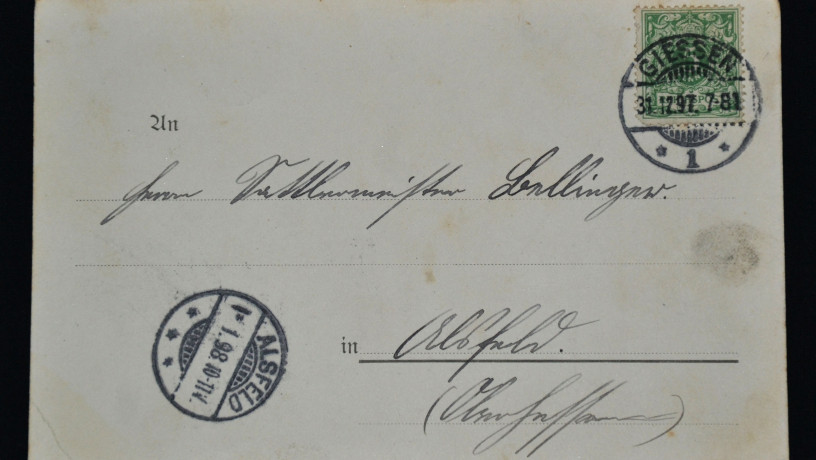 GIESSEN
31.12.97. 7-8N
* 1 *
An
Herrn Sattlermeister Bellinger.
ALSFELD
1.1.98.10-11V.
in Alsfeld.
(Oberhessen)